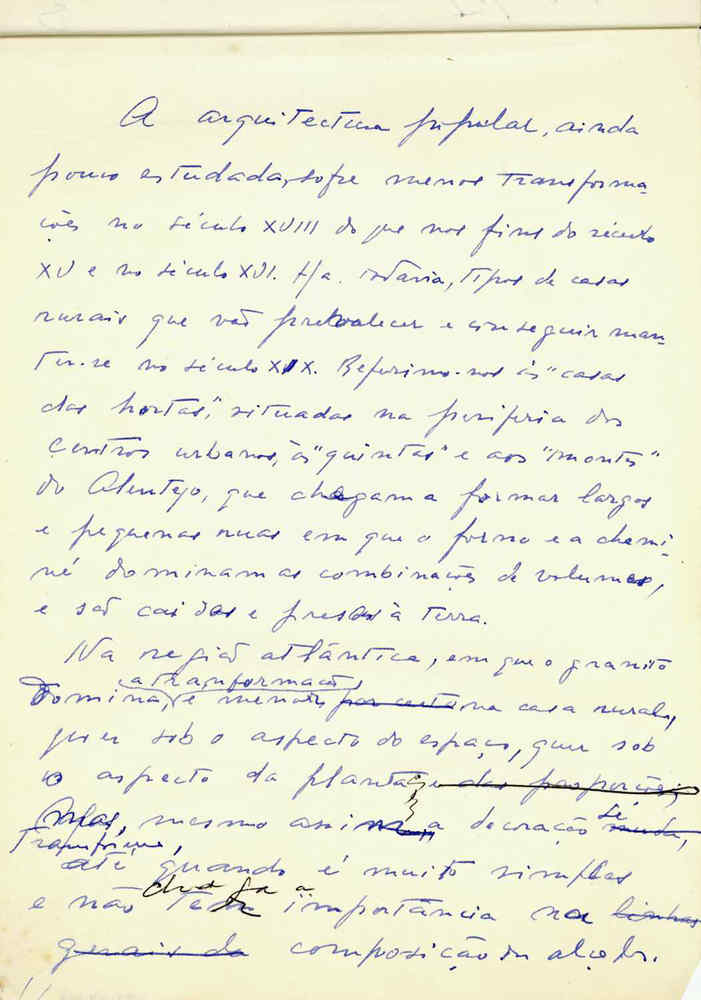 A arquitectura popular, ainda
pouco estudada, sofre menos transforma-
ções no século XVIII do que nos fins do século
XV e no século XVI. Há todavia, tipos de casas
rurais que vão prevalecer e conseguir man-
ter-se no século XIX. Referimo-nos às "casas
das hortas", situadas na periferia dos
centros urbanos, às "quintas" e aos "montes"
do Alentejo, que chegam a formar largos
e pequenas ruas em que o forno e a chami-
né dominam as combinações de volumes,
e são caiadas e presas à terra.
Na região atlântica, em que o granito
a transformação
domina, é menor por certo na casa rural,
quer sob o aspecto do espaço, quer sob
o aspecto da planta e das proporções;
Mas, mesmo assim, a decoração se muda,
transforma,
até quando é muito simples
e não chega a tem importância na linhas
gerais da composição du alçado.